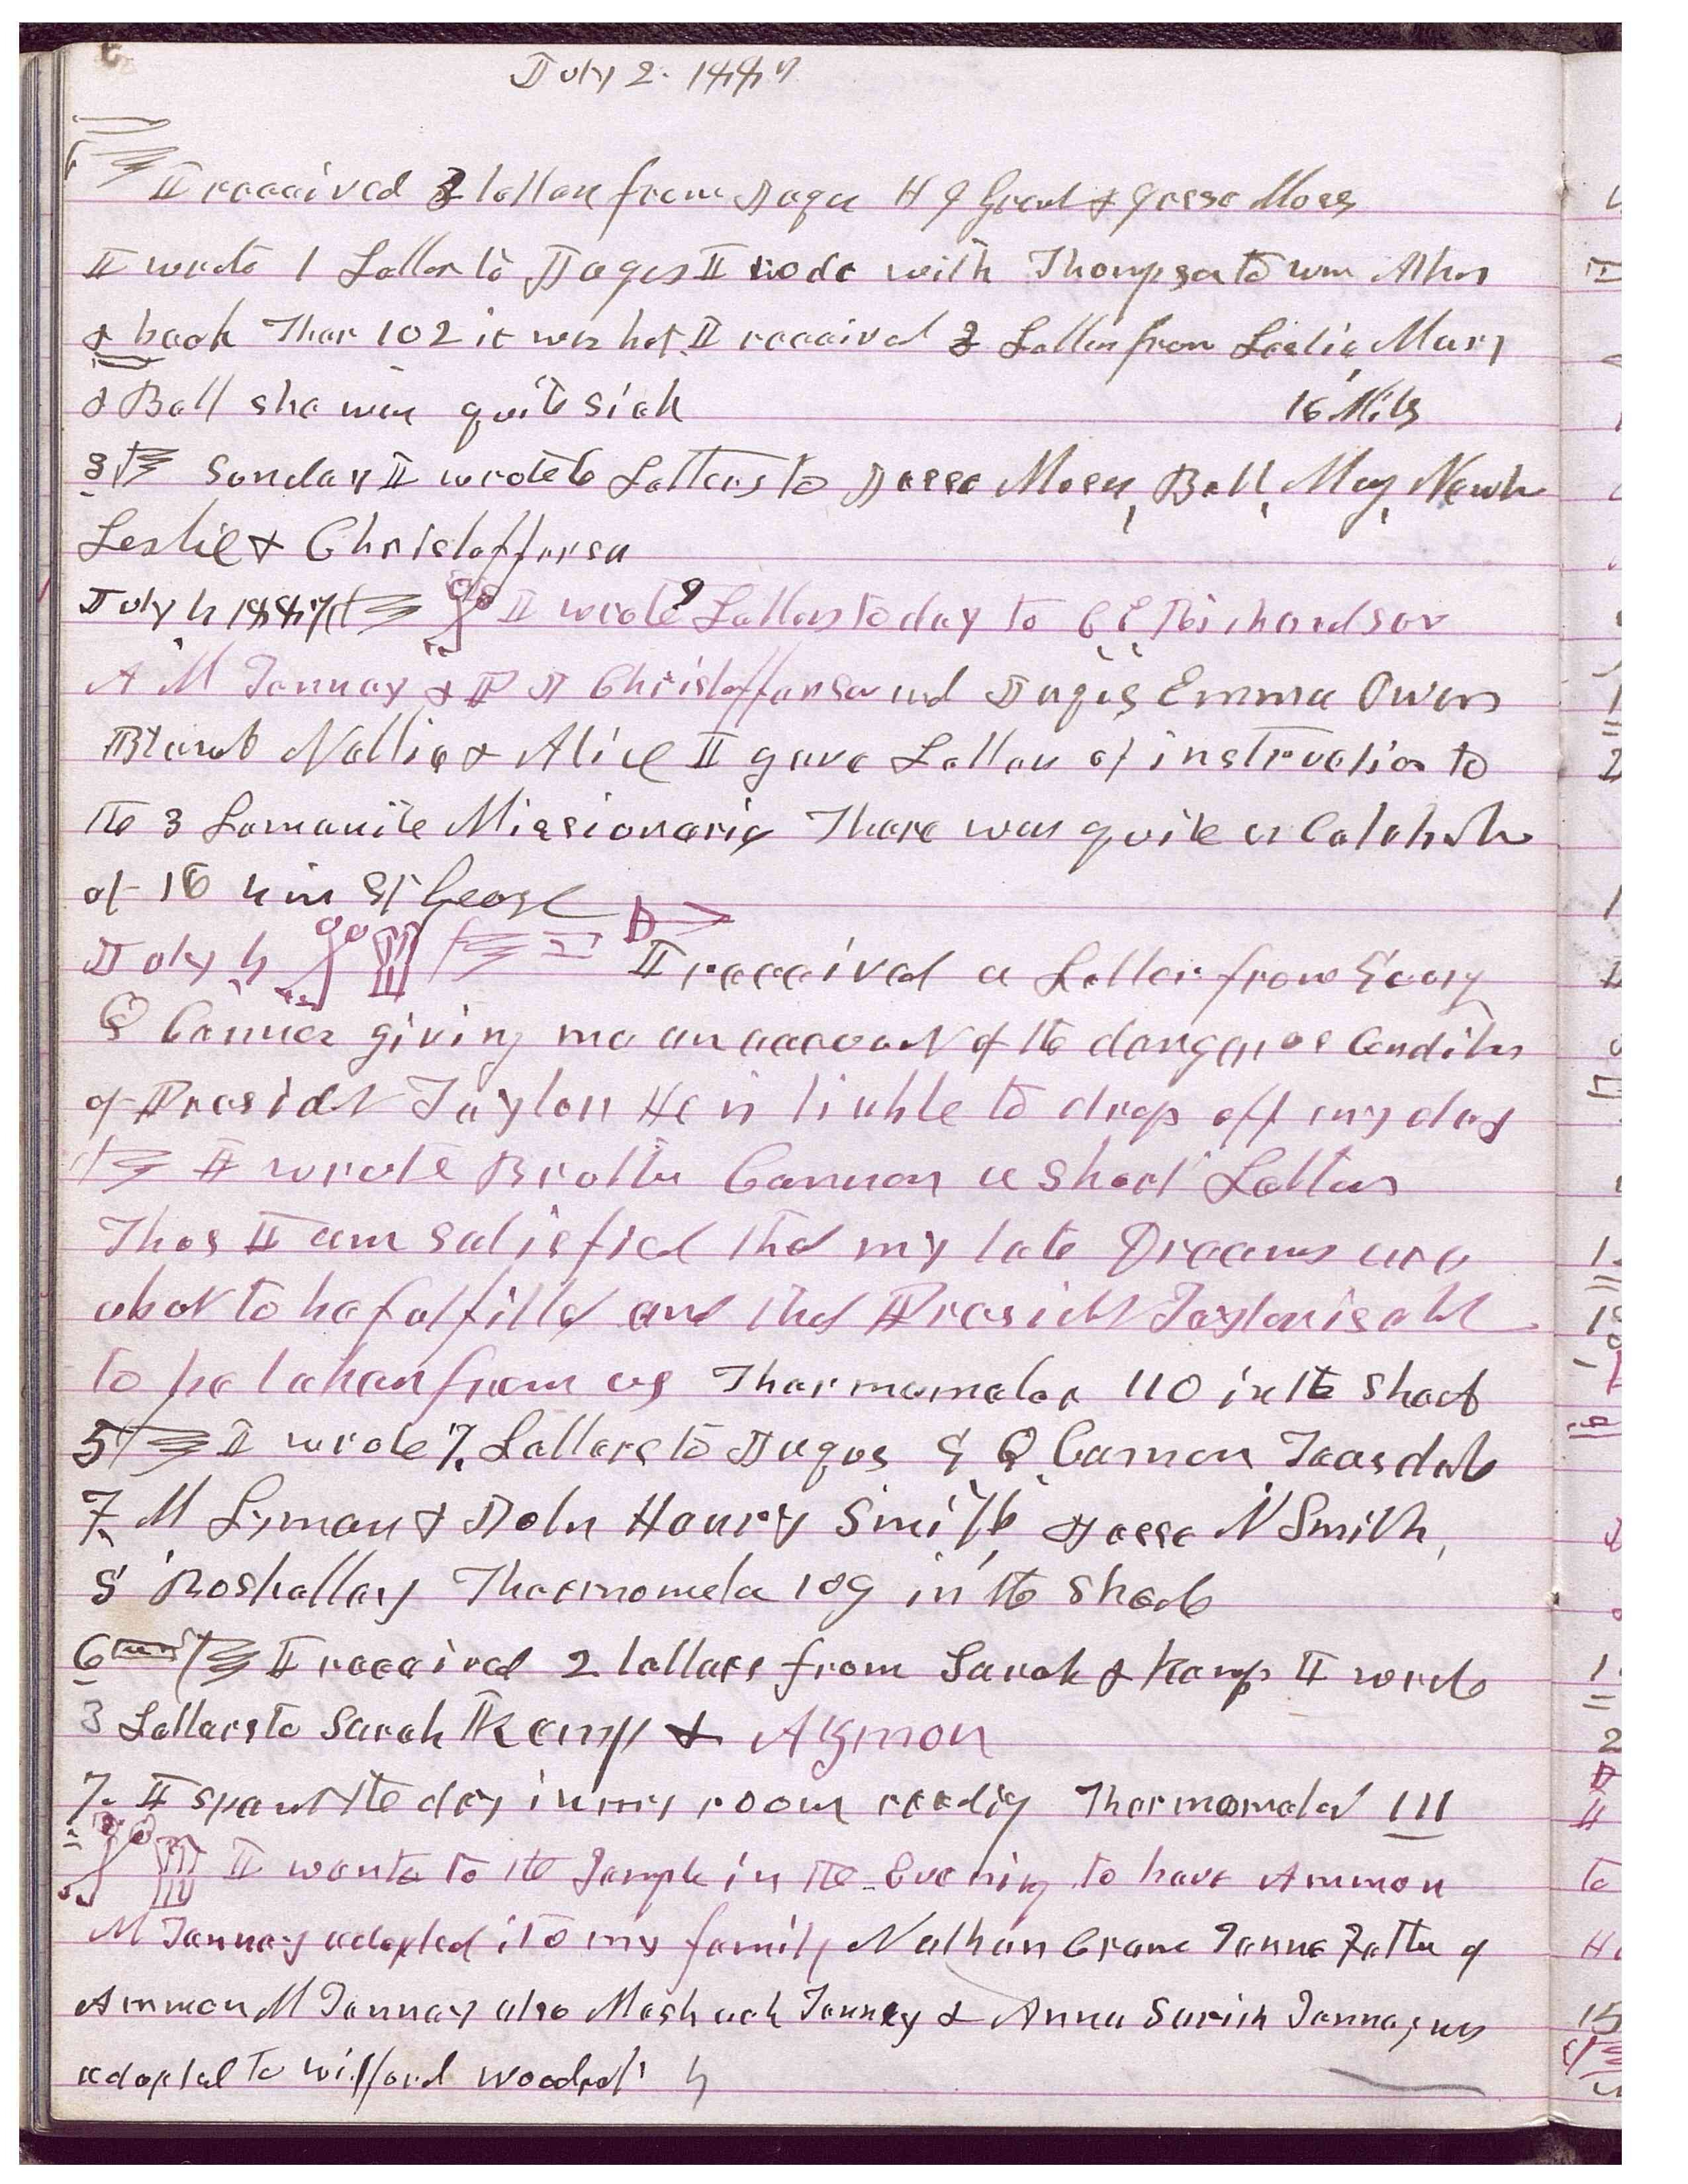 July 2. 1887
I received 3 letters from Jaques H J Grant & Jesse Moses
I wrote 1 Letter to Jaques I rode with Thompson to Wm Atkin
& back Ther 102 it was hot I received 3 Letters from Leslie, Mary
& Bell she was quite sick 16 Miles
3 Sunday I wrote 6 Letters to Jesse Moses, Bell, May, Newton
Leslie & Christofferson
July 4 1887 I wrote 9 Letters to day to C E Richardson
A M Tenney & P J Christofferson and Jaques Emma Owen
Blanch Nellie & Alice I gave Letters of instruction to
the 3 Lamanite Missionaries There was quite a Celebrtn
of 4 in St George
July 4 I received a Letter from George
Q Cannon giving me an account of the dangerous Condition
of Presidet Taylor He is liable to drop off any day
I wrote Brother Cannon a short Letter
Thos I am satisfied that my late Dreams are
about to be fulfilled and that Presidet Taylor is abt
to be taken from us Thermometer 110 in the shade
5 I wrote 7 Letters to Jaques G Q Cannon Teasdale
F M Lyman & John Henry Smith Jesse N Smith,
S Roskelley Thermometer 109 in the shade
6 I received 2 letters from Sarah & Kemp I wrote
3 Letters to Sarah Kemp & Asmon
7. I spent the day in my room reading Thermometer 111
I wente to the Temple in the Evening to have Ammon
M Tenney adopted ito my family Nathan Crane Tenne Father of
Ammon M Tenney also Meshach Tenney & Anna Sariah Tenney was
adopted to Wilford Woodruff 4